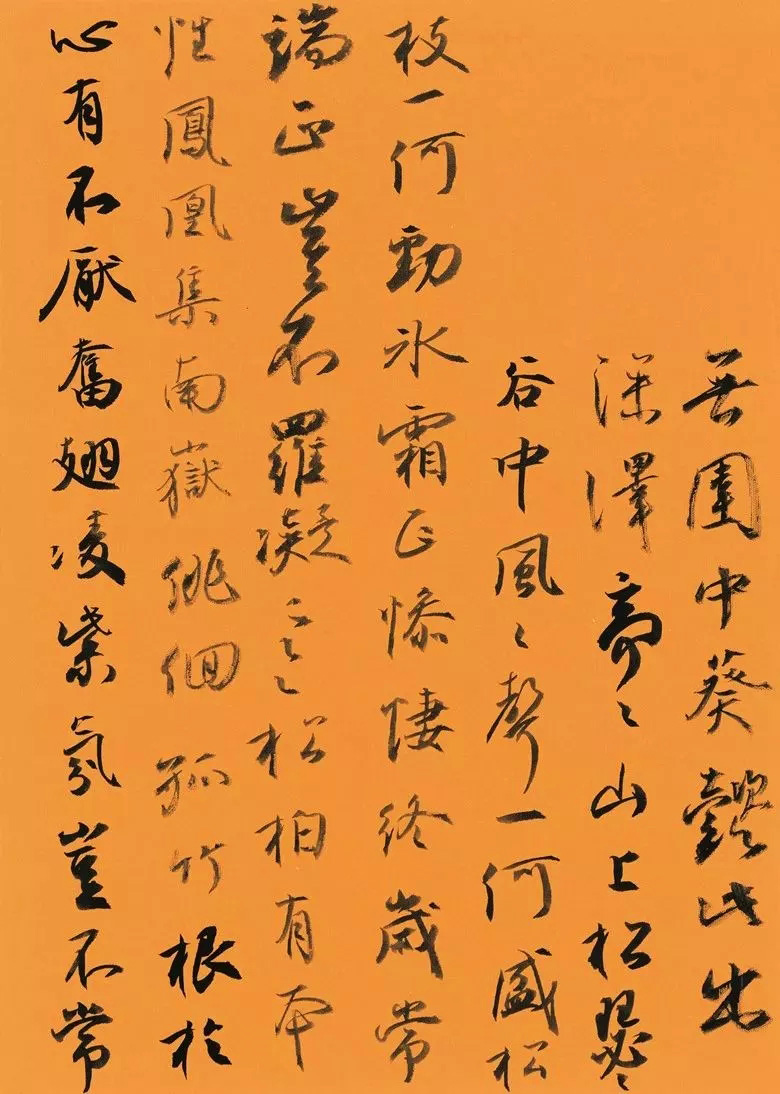 无園中葵懿此出
深澤亭〻山上松瑟〻
谷中風〻聲一何盛松
枝一何勁氷霜正慘悽終歲常
端正豈不羅凝寒松柏有本
性鳳凰集南嶽俳佪孤竹根於
心有不厭奮翅凌紫氛豈不常